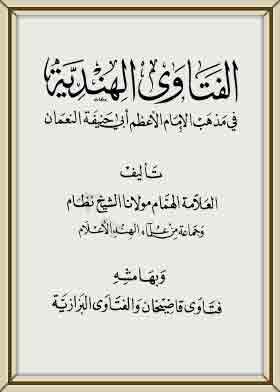 الفتاوى الهندية
في مذهب الإمام الأعظم أبي حنيفة النعمان
تأليف
العلامة الهمام مولانا الشيخ نظام
وجماعة من علماء الهند الأعلام
وبهامشه
فتاوى قاضيخان والفتاوى البزازية